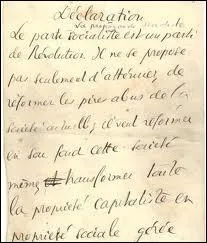 Déclaration
La propagande socialiste
Le parti socialiste est un parti
de Révolution. Il ne se propose
pas seulement d'atténuer, de
réformer les pires abus de la
société actuelle, il veut réformer
en son fond cette société
même transformer toute
la propriété capitaliste en
propriété sociale gérée